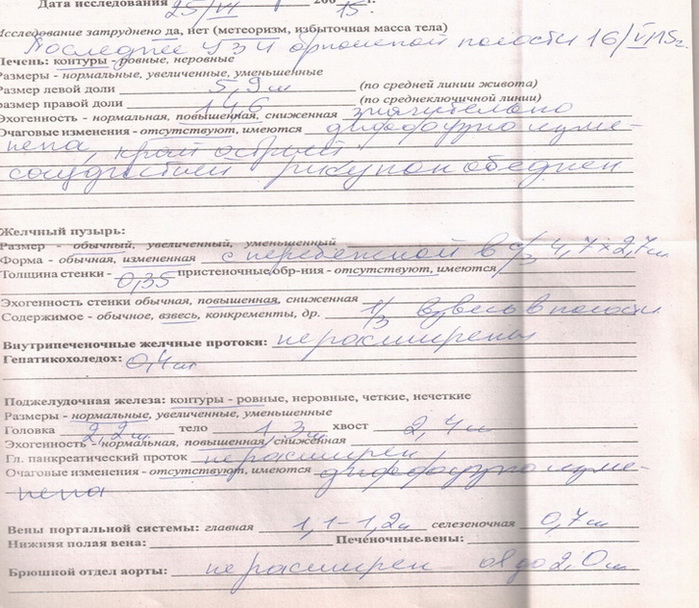 Дата исследования 25/VI 200 15. г.
Исследование затруднено да, нет (метеоризм, избыточная масса тела)
Последнее УЗИ брюшной полости 16/VI 15г.
Печень: контуры - ровные, неровные
Размеры - нормальные, увеличенные, уменьшенные
Размер левой доли 5,9 см (по средней линии живота)
размер правой доли 14,6 (по среднеключичной линии)
Эхогенность - нормальная, повышенная, сниженная значительно
Очаговые изменения - отсутствуют, имеются диффузно изме-
нена, край острый.
сосудистый рисунок обеднен
Желчный пузырь:
Размер - обычный, увеличенный, уменьшенный
Форма - обычная, измененная с перетяжкой в с/3 4,7×2,7см
Толщина стенки - 0,35 пристеночные обр-ния - отсутствуют, имеются
Эхогенность стенки обычная, повышенная, сниженная
Содержимое - обычное, взвесь, конкременты, др. 1/3 взвесь в полости
Внутрипеченочные желчные протоки: не расширены
Гепатикохоледох: 0,4см
Поджелудочная железа: контуры - ровные, неровные, четкие, нечеткие
Размеры - нормальные, увеличенные, уменьшенные
Головка 2,2см тело 1,3см хвост 2,4см
Эхогенность - нормальная, повышенная, сниженная
Гл. панкреатический проток не расширен
Очаговые изменения - отсутствуют, имеются диффузно изме-
нена
Вены портальной системы: главная 1,1-1,2см селезеночная 0,7см
Нижняя полая вена: Печеночные вены:
Брюшной отдел аорты: не расширен до 2,0см